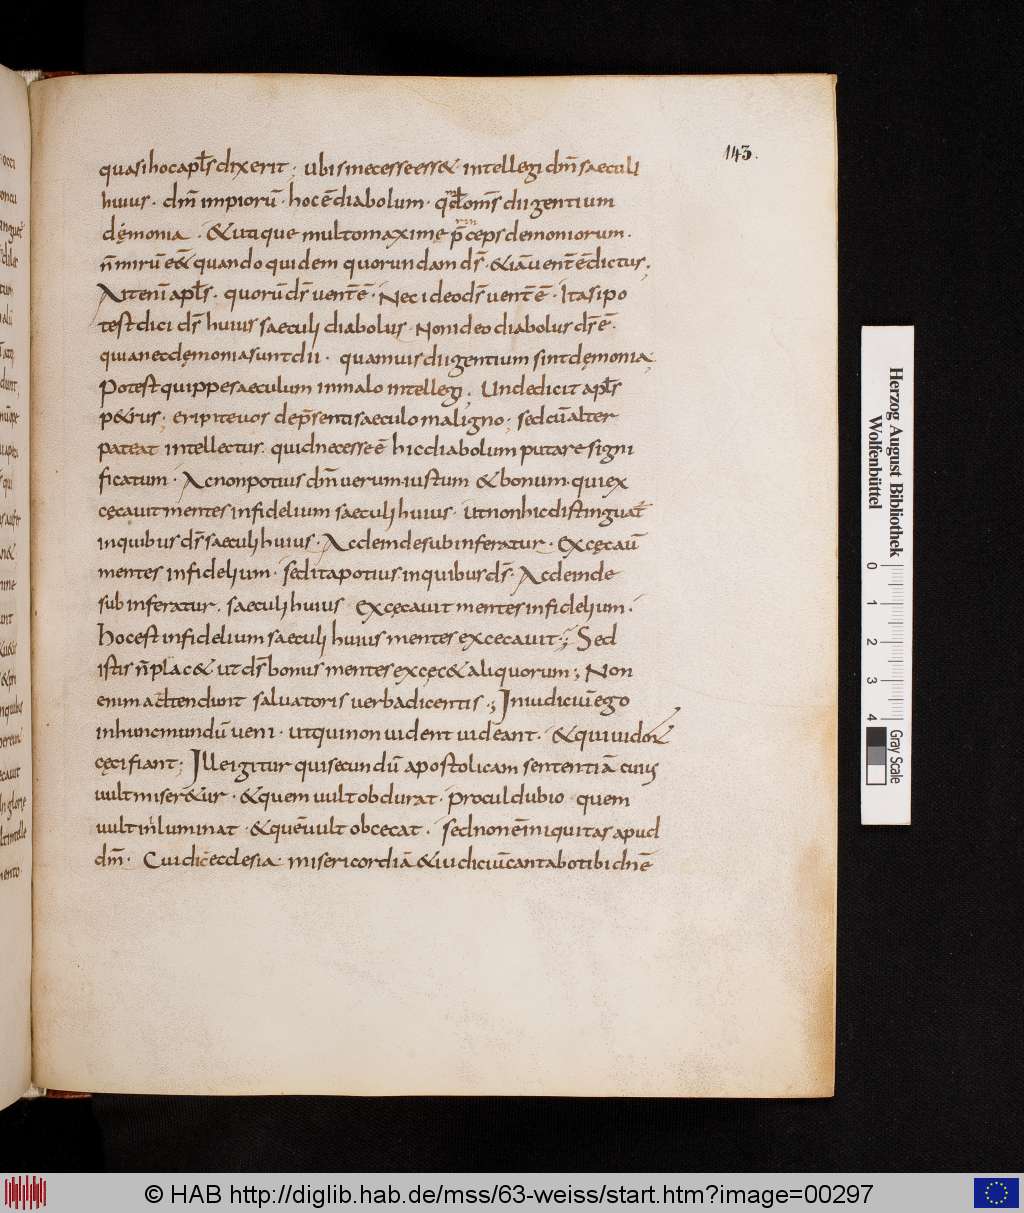 143.
quasi hoc apl̅s dixerit ; ubi si necesse ess& · intellegi dn̅m saeculi
huius · dm̅ impiorū · hoc ē diabolum · qm̅ om̅s dii gentium
dęmonia · & utique multo maximę p̅ceps demoniorum ·
n̅ mirū e& quando quidem quorundam ds̅ · & iā uent̅ ē dictus ;
Ait eni̅ apl̅s · quorū ds̅ uent̅ ē · Nec ideo ds̅ uent̅ ē · Ita si po
test dici ds̅ huius saeculi diabolus · Non ideo diabolus ds̅ ē ·
quia nec dęmonia sunt dii · quamuis dii gentium sint dęmonia ;
Potest quippe saeculum in malo intellegi ; Unde dicit apl̅s
p&rus ; eripite uos de p̅senti saeculo maligno ; sed cū aliter
pateat intellectus · quid necesse ē hic diabolum putare signi
ficatum · Ac non potius dm̅ uerum · iustum & bonum · qui ex
cęcauit mentes infidelium saeculi huius · ut non hic distinguat̅
in quibus ds̅ saeculi huius · Ac deinde subinferatur · Excęcauī
mentes infidelium · sed ita potius in quibus ds̅ · Ac deinde
subinferatur · saeculi huius excęcauit mentes infidelium ·
hoc est infidelium saeculi huius mentes excecauit ·; Sed
istis n̅ plac& · ut ds̅ bonus mentes excęc& aliquorum ; Non
enim adtendunt saluatoris uerba dicentis ·; In iudiciū ego
in hunc mundū ueni · ut qui non uident uideant · & qui uident
cęci fiant ; Ille igitur qui secundū apostolicam sententiā cuius
uult miser&ur · & quem uult obdurat · procul dubio quem
uult inluminat · & quē uult obcecat · sed non ē iniquitas apud
dm̅ · Cui dicit ecclesia misericordiā & iudiciū cantabo tibi dn̅e
Herzog August Bibliothek
Wolfenbüttel
0 1 2 3 4
Gray Scale
© HAB http://diglib.hab.de/mss/63-weiss/start.htm?image=00297